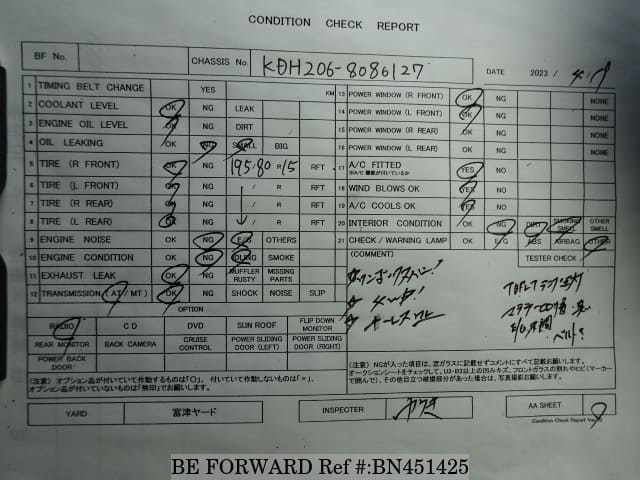 CONDITION CHECK REPORT
BF No. CHASSIS No. KDH206-8086127 DATE 2023 /
1 TIMING BELT CHANGE YES KM 13 POWER WINDOW (R FRONT) OK NG NONE
2 COOLANT LEVEL OK NG LEAK 14 POWER WINDOW (L FRONT) OK NG NONE
3 ENGINE OIL LEVEL OK NG DIRT 15 POWER WINDOW (R REAR) OK NG NONE
4 OIL LEAKING OK NG SMALL BIG 16 POWER WINDOW (L REAR) OK NG NONE
5 TIRE (R FRONT) OK NG 195/80 R15 RFT 17 A/C FITTED YES NO
※A/C 機能が付いているか
6 TIRE (L FRONT) OK NG / R RFT 18 WIND BLOWS OK YES NO
7 TIRE (R REAR) OK NG / R RFT 19 A/C COOLS OK YES NO
8 TIRE (L REAR) OK NG / R RFT 20 INTERIOR CONDITION OK NG DIRT SMOKING SMELL OTHER SMELL
9 ENGINE NOISE OK NG E/G OTHERS 21 CHECK / WARNING LAMP OK E/G ABS AIRBAG OTHER
10 ENGINE CONDITION OK NG IDLING SMOKE (COMMENT) TESTER CHECK
11 EXHAUST LEAK OK NG MUFFLER RUSTY MISSING PARTS
12 TRANSMISSION (AT/ MT) OK NG SHOCK NOISE SLIP
OPTION
RADIO CD DVD SUN ROOF FLIP DOWN MONITOR
REAR MONITOR BACK CAMERA CRUISE CONTROL POWER SLIDING DOOR (LEFT) POWER SLIDING DOOR (RIGHT)
POWER BACK DOOR
ベルト?
(注意) オプション品が付いていて作動するものは「○」、付いていて作動しないものは「×」、
オプション品が付いていないものは「無印」でお願いします。
(注意) NGが入った項目は、窓ガラスに記載せずコメントにすべて記載お願いします。
オークションシートをチェックして、U3・B3以上の凹みキズ、フロントガラスの割れやヒビ(マーカー
で囲んで)、その他目立つ破損部分があった場合は、写真撮影お願いします。
YARD 富津ヤード INSPECTER AA SHEET
Condition Check Report Ver.
BE FORWARD Ref #:BN451425